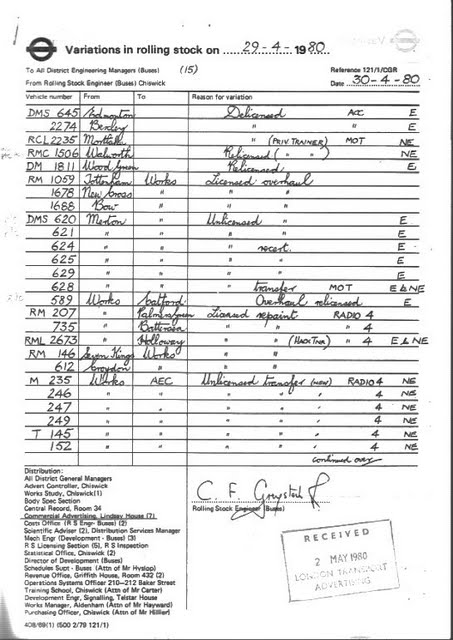 Variations in rolling stock on 29-4-1980
To All District Engineering Managers (Buses) (15) Reference 121/1/CGR
From Rolling Stock Engineer (Buses) Chiswick Date 30-4-80
Vehicle number From To Reason for variation
DMS 645 Edmonton Delicensed ACC E
2274 Bexley " " E
RCL 2235 Mortlake " (PRIV. TRAINER) MOT NE
RMC 1506 Walworth Relicensed ( " " ) NE
DM 1811 Wood Green Relicensed E
RM 1059 Tottenham Works Licensed overhaul
1678 New Cross " " "
1688 Bow " " "
DMS 620 Merton " Unlicensed " E
621 " " " " E
624 " " " recert. E
625 " " " " E
629 " " " " E
628 " " " transfer MOT E & NE
589 Works Catford Overhaul relicensed E
RM 207 " Palmers Green Licensed repaint RADIO 4
735 " Battersea " " 4
RML 2673 " Holloway " " E & NE
RM 146 Seven Kings Works " "
612 Croydon " " "
M 235 Works AEC Unlicensed transfer (new) RADIO 4 NE
246 " " " " " 4 NE
247 " " " " " 4 NE
249 " " " " " 4 NE
T 145 " " " " " 4 NE
152 " " " " " 4 NE
continued over
Distribution:
All District General Managers
Advert Controller, Chiswick
Works Study, Chiswick(1)
Body Spec Section
Central Record, Room 34
Commercial Advertising, Lindsey House (7)
Costs Office (R S Engr- Buses) (2)
Scientific Adviser (2), Distribution Services Manager
Mech Engr (Development - Buses) (3)
R S Licensing Section (5), R S Inspection
Statistical Office, Chiswick (2)
Director of Development (Buses)
Schedules Supt - Buses (Attn of Mr Hyslop)
Revenue Office, Griffith House, Room 432 (2)
Operations Systems Officer 210-212 Baker Street
Training School, Chiswick (Attn of Mr Carter)
Development Engr, Signalling, Telstar House
Works Manager, Aldenham (Attn of Mr Hayward)
Purchasing Officer, Chiswick (Attn of Mr Hillier)
408/69(1) (500 2/79 121/1)
C. F.
Rolling Stock Engineer (Buses)
RECEIVED
2 MAY 1980
LONDON TRANSPORT
ADVERTISING